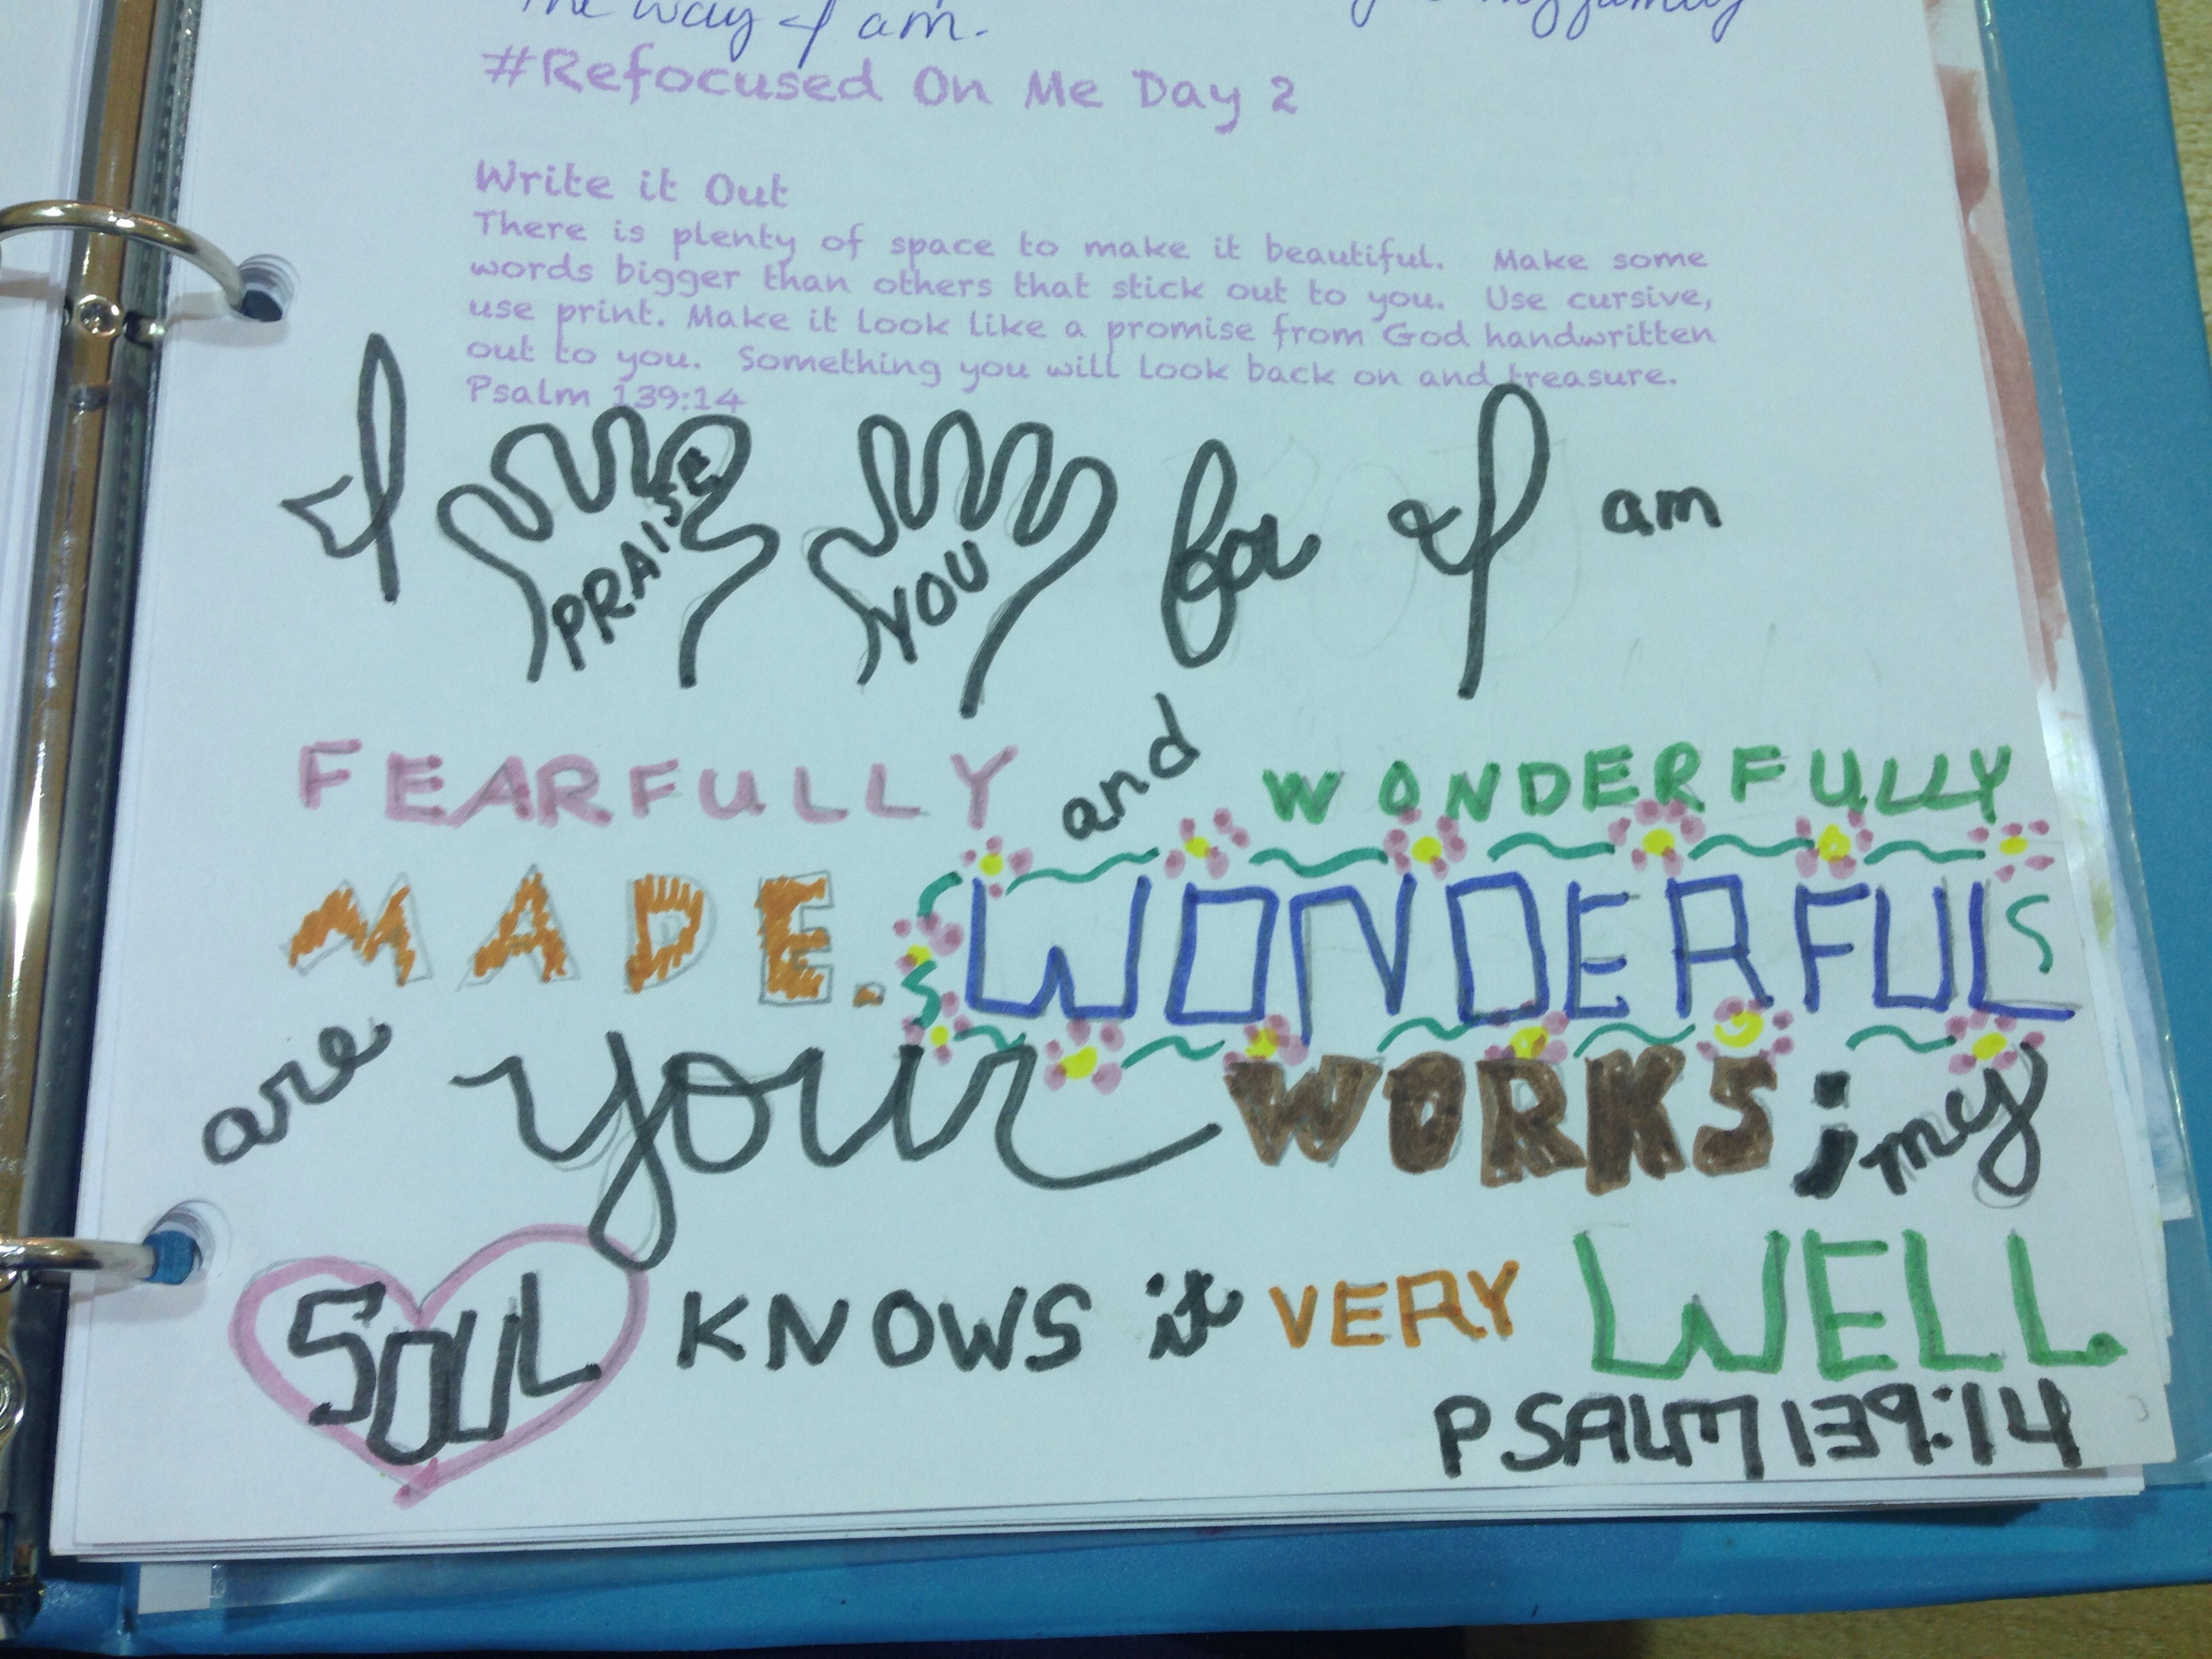 The way I am. my family
#Refocused On Me Day 2
Write it Out
There is plenty of space to make it beautiful. Make some
words bigger than others that stick out to you. Use cursive,
use print. Make it look like a promise from God handwritten
out to you. Something you will look back on and treasure.
Psalm 139:14
I PRAISE YOU for I am
FEARFULLY and WONDERFULLY
MADE. WONDERFUL
are your WORKS; my
SOUL KNOWS it VERY WELL.
PSALM 139:14